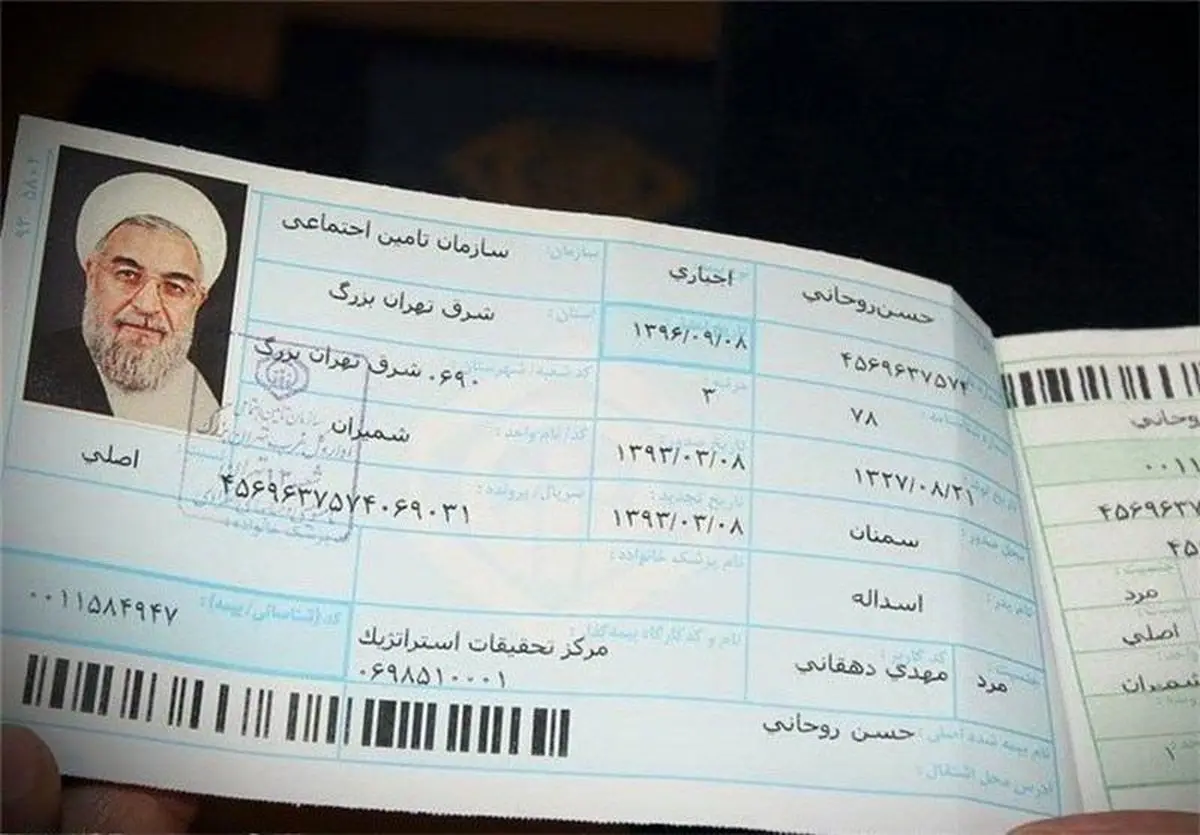 حسن‌روحاني
اجباري
سازمان: سازمان تامین اجتماعی
۴۵۶۹۶۳۷۵۷۴
۱۳۹۶/۰۹/۰۸
استان: شرق تهران بزرگ
۷۸
۳
کد شعبه/ شهرستان: ۰۶۹۰ شرق تهران بزرگ
۱۳۲۷/۰۸/۲۱
تاریخ صدور: ۱۳۹۳/۰۳/۰۸
کد/نام واحد: شمیران
محل صدور: سمنان
تاریخ تجدید: ۱۳۹۳/۰۳/۰۸
سریال/پرونده: ۴۵۶۹۶۳۷۵۷۴۰۶۹۰۳۱
اصلي
نام پدر: اسداله
نام پزشک خانواده:
جنسیت: مرد
کد کاربر: مهدي دهقاني
نام و کد کارگاه بیمه‌گذار: مرکز تحقیقات استراتژيك
۰۶۹۸۵۱۰۰۰۱
کد (شناسائی/بیمه): ۰۰۱۱۵۸۴۹۴۷
نام بیمه شده اصلی: حسن روحاني
آدرس محل اشتغال:
۰۰۱۱
۴۵۶۹۶۳۷
۴۵
جنسیت:
مرد
اصلي
شمیران
۱